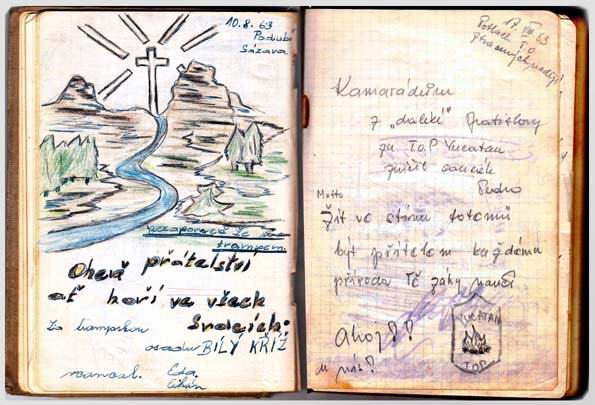 10.8.63
Podubí
Sázava.
nezapomeň že jsi
trampem
Oheň přátelství
ať hoří ve všech
srdcích.
Za trampskou
osadu BÍLÝ KŘÍŽ
Eda
17. VIII 63
Potlach T.O
Ztracených nadějí
Kamarádům
z „daleké" Bratislavy
za T.O.P Yucatan
Pedro
Motto
Žít ve stínu totemů
být přítelem každému
příroda Tě záhy naučí
Ahoj!!
u nás!
YUCATAN
T.O.P.